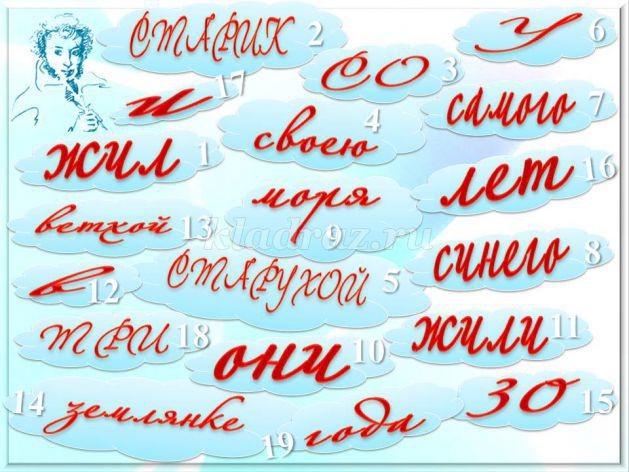 СТАРИК 2
У 6
СО 3
и 17
самого 7
своею 4
жил 1
лет 16
моря 9
ветхой 13
kladraz.ru
синего 8
в 12
СТАРУХОЙ 5
ТРИ 18
жили 11
они 10
30 15
14 землянке
19 года